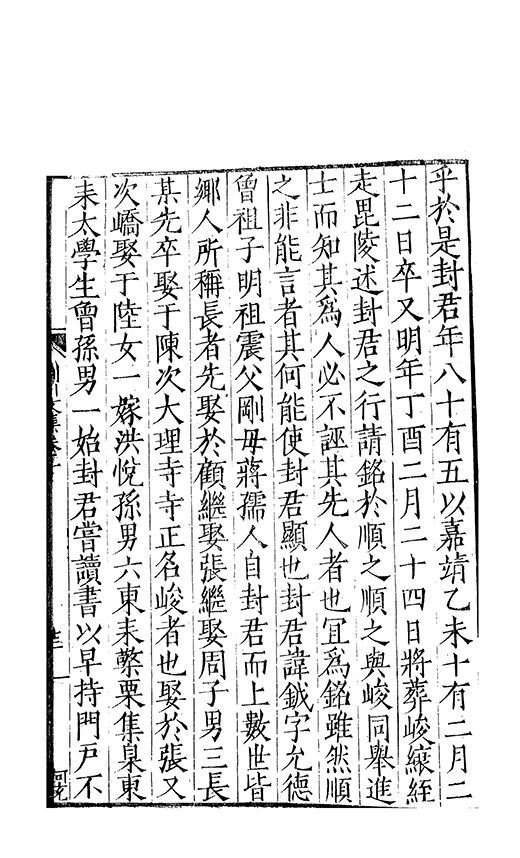 乎於是封君年八十有五以嘉靖乙未十有二月二
十二日卒又明年丁酉二月二十四日將葬峻縗絰
走毘陵述封君之行請銘於順之順之與峻同舉進
士而知其爲人必不誣其先人者也冝爲銘雖然順
之非能言者其何能使封君顯也封君諱鉞字允德
曾祖子明祖震父剛母蔣孺人自封君而上數世皆
鄉人所稱長者先娶於顧繼娶張繼娶周子男三長
某先卒娶于陳次大理寺寺正名峻者也娶於張又
次嶠娶于陸女一嫁洪悅孫男六東耒檠栗集臬東
耒太學生曾孫男一始封君嘗讀書以早持門戶不